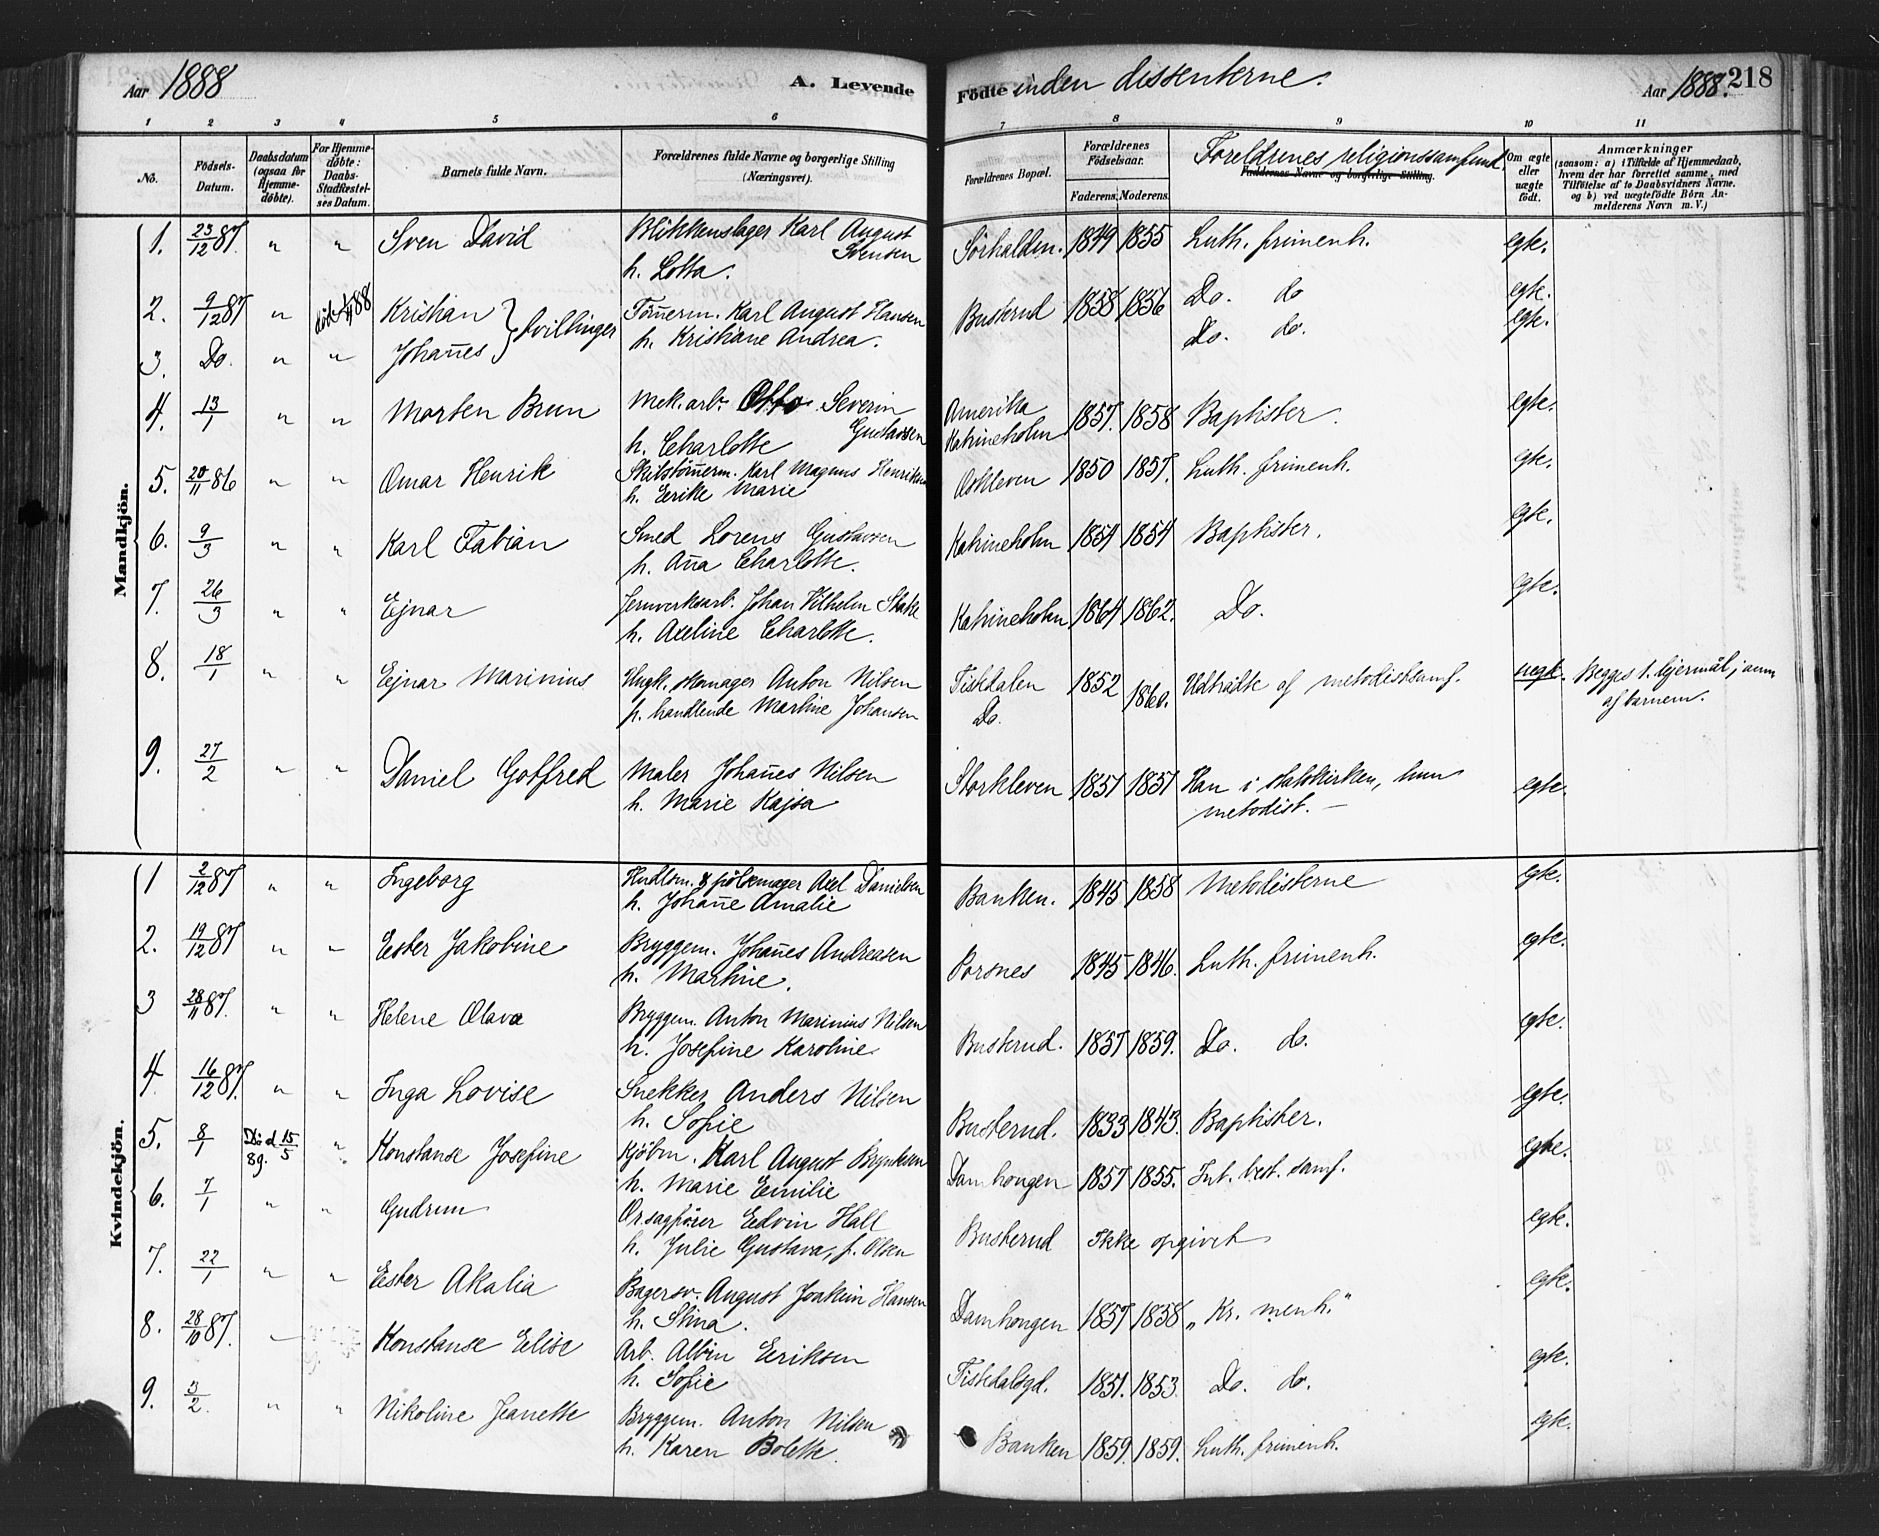 Aar 1888 A. Levende
Födte inden dissenterne. Aar 1888. 218
1 2 3 4 5 6
7 8 9 10 11
No. Födsels-Datum. Daabsdatum (ogsaa for Hjemme-döbte). For Hjemme-döbte: Daabs-Stadfæstel-ses Datum. Barnets fulde Navn. Forældrenes fulde Navne og borgerlige Stilling (Næringsvei).
Forældrenes Bopæl. Forældrenes Födselsaar. Faderens. Moderens. Foreldrenes religionssamfund. Faddernes Navne og borgerlige Stilling. Om ægte eller uægte födt. Anmærkninger
(saasom: a) i Tilfælde af Hjemmedaab,
hvem der har forrettet samme, med
Tilföielse af to Daabsvidners Navne.
og b) ved uægtefödte Börn An-
melderens Navn m. V.)
Mandkjön.
1. 23/12 87. " " Sven David Blikkenslager Karl August Svensen
h. Lotta. Sörhalden. 1849 1855 Luth. frimenh. egte.
2. 9/12 87 " död 88 Kristian } tvillinger Tömerm. Karl August Hansen Busterud 1858 1856 Do. do egte.
3. Do. " " Johañes h. Kristiane Andrea. Do. do. egte.
4. 13/1 " " Morten Brun Mek. arb. Otto Severin Gustavsen
h. Charlotte Amerika Katrineholm 1857. 1858 Baptister. egte.
5. 20/11 86 " " Omar Henrik Skibstömerm. Karl Magnus Henriksen
h. Eerike Marie Oskleven 1850 1857. Luth. frimenh. egte.
6. 9/3 " " Karl Fabian Smed Lorens Gustavsen
h. Aña Charlotte. Katrineholm 1854 1854 Baptister. egte.
7. 26/3 " " Ejnar Jernverksarb. Johan Vilhelm Stake
h. Axeline Charlotte. Katrineholm 1864 1862. Do. egte.
8. 18/1 " " Ejnar Marinius Ungk. skomager Anton Nilsen
p. handlende Martine Johansen Fiskdalen Do. 1852 1860. Udtrådte af metodistsamf. uegte. Begges 1. lejermål; anm
af barnem.
9. 27/2 " " Daniel Gotfred Maler Johañes Nilsen
h. Marie Kajsa Storkleven 1851 1851 Han i statskirken, hun
metodist. — egte.
Kvindekjön.
1 2/12 87 " " Ingeborg Handlsm. & pölsemager Axel Danielsen
h. Johañe Amalie Banken. 1845 1858 Metodisterne egte.
2. 19/12 87 " " Ester Jakobine Bryggem. Johañes Andreasen
h. Martine. Porsnes 1845 1846. Luth. frimenh. egte.
3 28/11 87. " " Helene Olava Bryggem. Anton Marinius Nilsen
h. Josefine Karoline. Busterud. 1857 1859. Do. do. egte.
4. 16/12 87. " " Inga Lovise Snekker Anders Nilsen
h. Sofie Busterud. 1833 1843. Baptister. egte.
5. 8/1 Död 15/5 89. " Konstanse Josefine Kjöbm. Karl August Bryntesen
h. Marie Emilie Damhougen 1857 1855. Int. best. samf. egte.
6. 7/1 " " Gudrun Orsagförer Edvin Hall
h. Julie Gustava, f. Olsen Busterud Ikke opgivet egte.
7. 22/1 " " Ester Akalia Bagersv. August Joakim Hansen
h. Stina. Damhougen 1857 1858 „Kr. menh." egte.
8. 28/10 87. " Konstanse Elise Arb. Albin Eriksen
h. Sofie Fiskdalsgd. 1851. 1853. Do. do. egte.
9. 3/2. " " Nikoline Jeanette Bryggem. Anton Nilsen
h. Karen Bolette. Banken 1859. 1859. Luth. frimenh. egte.